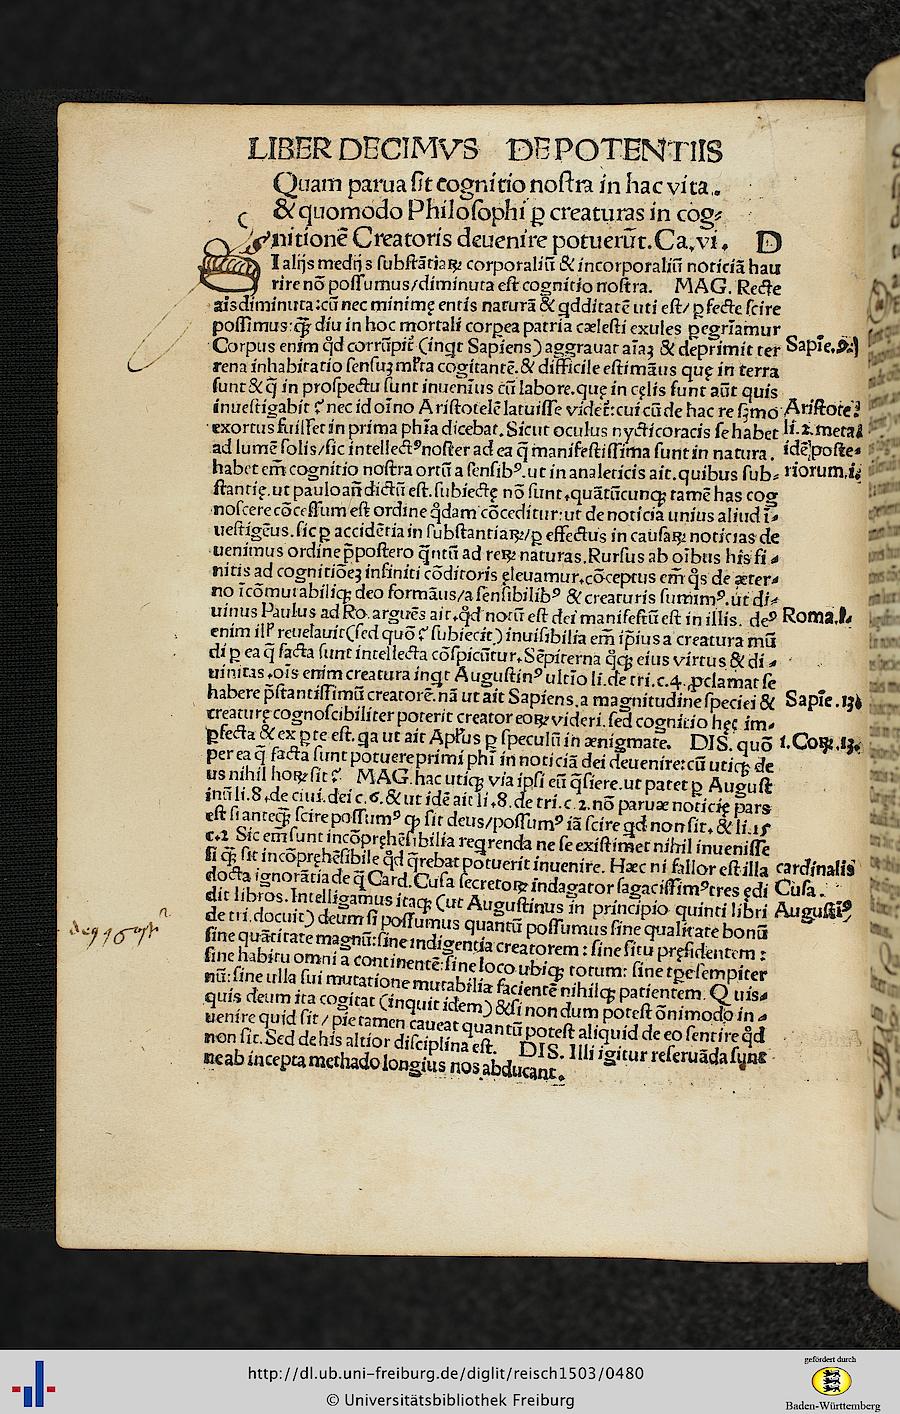 LIBER DECIMVS DE POTENTIIS
Quam parua sit cognitio nostra in hac vita.
& quomodo Philosophi ꝑ creaturas in cog⸗
nitionē Creatoris deuenire potuerūt. Ca. vi. D
I alijs medijs substātiaꝝ corporaliū & incorporaliū noticiā hau
rire nō possumus/diminuta est cognitio nostra. MAG. Recte
ais diminuta: cū nec minimę entis naturā & qdditatē uti est/ ꝑfecte scire
possimus: ꝗꝫ diu in hoc mortali corpea patria cælesti exules ꝑegriamur
Corpus enim qd corrūpit (inqt Sapiens) aggrauat aiaꝫ & deprimit ter
Sapie. 9.
rena inhabitatio sensuꝫ mlta cogitantē. & difficile estimāus quę in terra
sunt & q̄ in prospectu sunt inuenius cū labore. quę in cęlis sunt aūt quis
inuestigabit? nec id oīno Aristotelē latuisse videt: cui cū de hac re sꝫmo
Aristote.
exortus fuisset in prima phia dicebat. Sicut oculus nycticoracis se habet
li. 2. meta
ad lumē solis/sic intellectꝰ noster ad ea q̄ manifestissima sunt in natura.
idē poste⸗
habet em̄ cognitio nostra ortū a sensibꝰ. ut in analeticis ait. quibus sub⸗
riorum. i.
stantię. ut paulo an̄ dictū est. subiectę nō sunt. quātūcunqꝫ tamē has cog
noscere cōcessum est ordine q̄dam cōceditur: ut de noticia unius aliud ī⸗
uestigēus. sic ꝑ accidētia in substantiaꝝ/ꝑ effectus in causaꝝ noticias de
uenimus ordine p̄postero q̄ntū ad reꝝ naturas. Rursus ab oībus his fi⸗
nitis ad cognitiōeꝫ infiniti cōditoris ęleuamur. cōceptus em̄ q̄s de æter⸗
no īcōmutabiliqꝫ deo formāus/a sensibilibꝰ & creaturis sumimꝰ. ut di⸗
uinus Paulus ad Ro. arguēs ait. qd notū est dei manifestū est in illis. deꝰ
Roma. 1.
enim ill reuelauit (sed quō? subiecit) inuisibilia em̄ ipius a creatura mū
di ꝑ ea q̄ facta sunt intellecta cōspicūtur. Sēpiterna qꝫ eius virtus & di⸗
uinitas. ois enim creatura inqt Augustinꝰ ultio li. de tri. c. 4. ꝓclamat se
habere p̄stantissimū creatorē. nā ut ait Sapiens. a magnitudine speciei &
Sapie. 13.
creaturę cognoscibiliter poterit creator eoꝝ videri. sed cognitio hęc im⸗
ꝑfecta & ex ꝑte est. qa ut ait Aplus ꝑ speculū in ænigmate. DIS. quō
1. Coꝝ. 13.
per ea q̄ facta sunt potuere primi phi in noticiā dei deuenire: cū utiqꝫ de
us nihil hoꝝ sit? MAG. hac utiqꝫ via ipsi eū q̄siere. ut patet ꝑ August
inū li. 8. de ciui. dei c. 6. & ut idē ait li. 8. de tri. c. 2. nō paruæ noticię pars
est si anteqꝫ scire possumꝰ qꝫ sit deus/possumꝰ iā scire qd non sit. & li. 15
c. 2 Sic em̄ sunt incōpręhēsibilia reqrenda ne se existimet nihil inuenisse
si qꝫ sit incōpręhēsibile qd q̄rebat potuerit inuenire. Hæc ni fallor est illa
cardinalis
docta ignorātia de q̄ Card. Cusa secretoꝝ indagator sagacissimꝰ tres ędi
Cusa.
dit libros. Intelligamus itaqꝫ (ut Augustinus in principio quinti libri
Augustiꝰ
de tri. docuit) deum si possumus quantū possumus sine qualitate bonū
sine quātitate magnū: sine indigentia creatorem: sine situ pręsidentem:
sine habitu omni a continentē: sine loco ubiqꝫ totum: sine tꝑe sempiter
nū: sine ulla sui mutatione mutabilia facientē nihilqꝫ patientem. Quis⸗
quis deum ita cogitat (inquit idem) & si non dum potest ōnimodo in⸗
uenire quid sit/pie tamen caueat quantū potest aliquid de eo sentire qd
non sit. Sed de his altior disciplina est. DIS. Illi igitur reseruāda sunt
ne ab incepta methado longius nos abducant.
http://dl.ub.uni-freiburg.de/diglit/reisch1503/0480
© Universitätsbibliothek Freiburg
gefördert durch
Baden-Württemberg